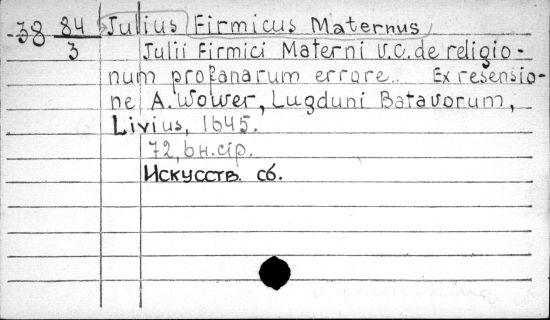 -38 84/3 Julius Firmicus Maternus
Julii Firmici Materni V.C. de religio-
num profanarum errore.. Ex resensio-
ne A. Wower, Lugduni Batavorum,
Livius, 1645.
72, бн. стр.
Искусств. сб.